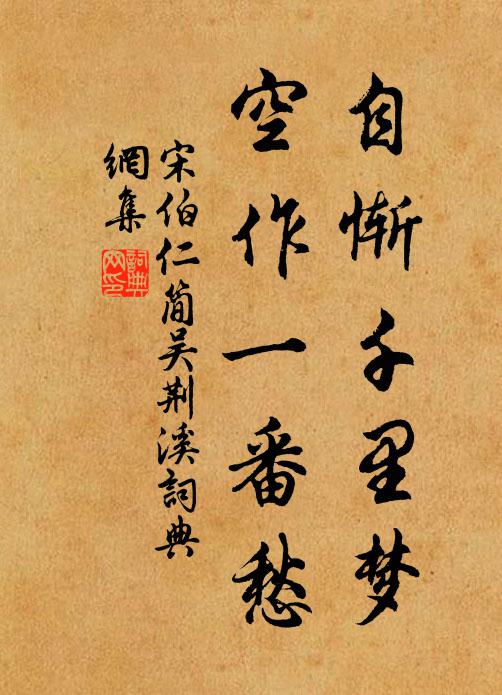 自惭千里梦
空作一番愁
宋伯仁简吴荆溪詞典
網集
詞典
网印